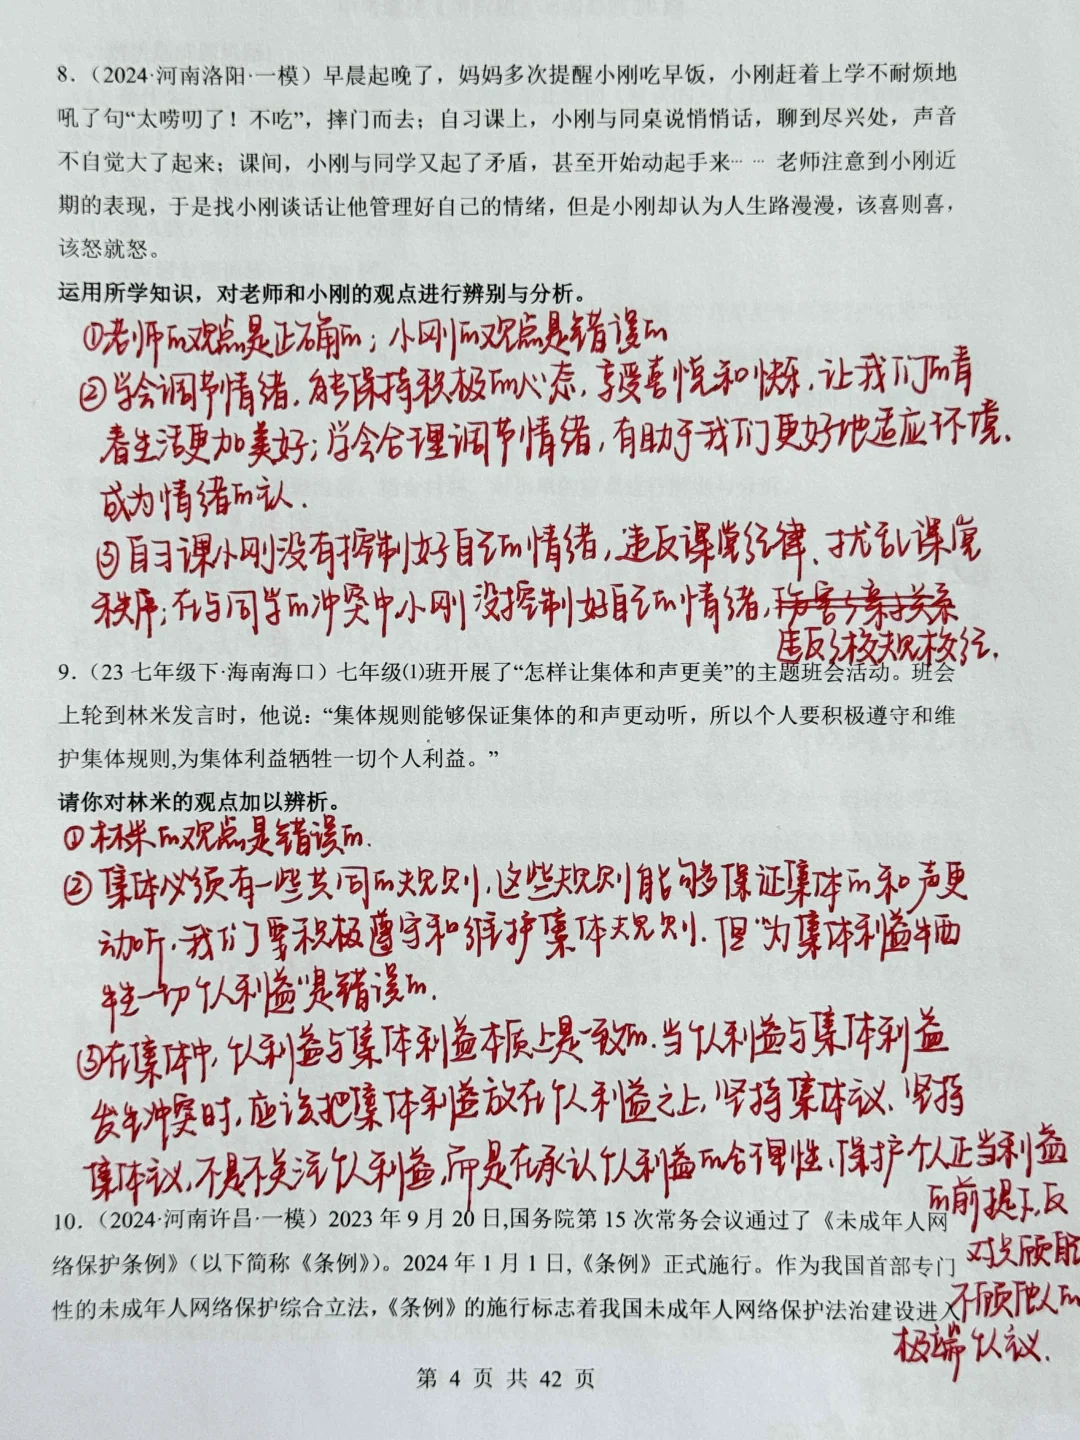 8.（2024·河南洛阳·一模）早晨起晚了，妈妈多次提醒小刚吃早饭，小刚赶着上学不耐烦地
吼了句“太唠叨了！不吃”，摔门而去；自习课上，小刚与同桌说悄悄话，聊到尽兴处，声音
不自觉大了起来；课间，小刚与同学又起了矛盾，甚至开始动起手来… …老师注意到小刚近
期的表现，于是找小刚谈话让他管理好自己的情绪，但是小刚却认为人生路漫漫，该喜则喜，
该怒就怒。
运用所学知识，对老师和小刚的观点进行辨别与分析。
①老师的观点是正确的；小刚的观点是错误的
②学会调节情绪，能保持积极的心态，享受喜悦和快乐，让我们的青
春生活更加美好；学会合理调节情绪，有助于我们更好地适应环境，
成为情绪的主人．
③自习课小刚没有控制好自己的情绪，违反课堂纪律、扰乱课堂
秩序；在与同学的冲突中小刚没控制好自己的情绪，
违反学校规校纪．
9.（23 七年级下·海南海口）七年级⑴班开展了“怎样让集体和声更美”的主题班会活动。班会
上轮到林米发言时，他说：“集体规则能够保证集体的和声更动听，所以个人要积极遵守和维
护集体规则,为集体利益牺牲一切个人利益。”
请你对林米的观点加以辨析。
①林米的观点是错误的．
②集体必须有一些共同的规则，这些规则能够保证集体的和声更
动听，我们要积极遵守和维护集体规则．但“为集体利益牺
牲一切个人利益”是错误的．
③在集体中，个人利益与集体利益本质上是一致的．当个人利益与集体利益
发生冲突时，应该把集体利益放在个人利益之上，坚持集体主义、坚持
集体主义，不是不关注个人利益，而是在承认个人利益的合理性、保护个人正当利益
的前提下，反
对只顾自己
不顾他人的
极端个人主义．
10.（2024·河南许昌·一模）2023 年 9 月 20 日,国务院第 15 次常务会议通过了《未成年人网
络保护条例》（以下简称《条例》）。2024 年 1 月 1 日,《条例》正式施行。作为我国首部专门
性的未成年人网络保护综合立法，《条例》的施行标志着我国未成年人网络保护法治建设进入
第 4 页 共 42 页